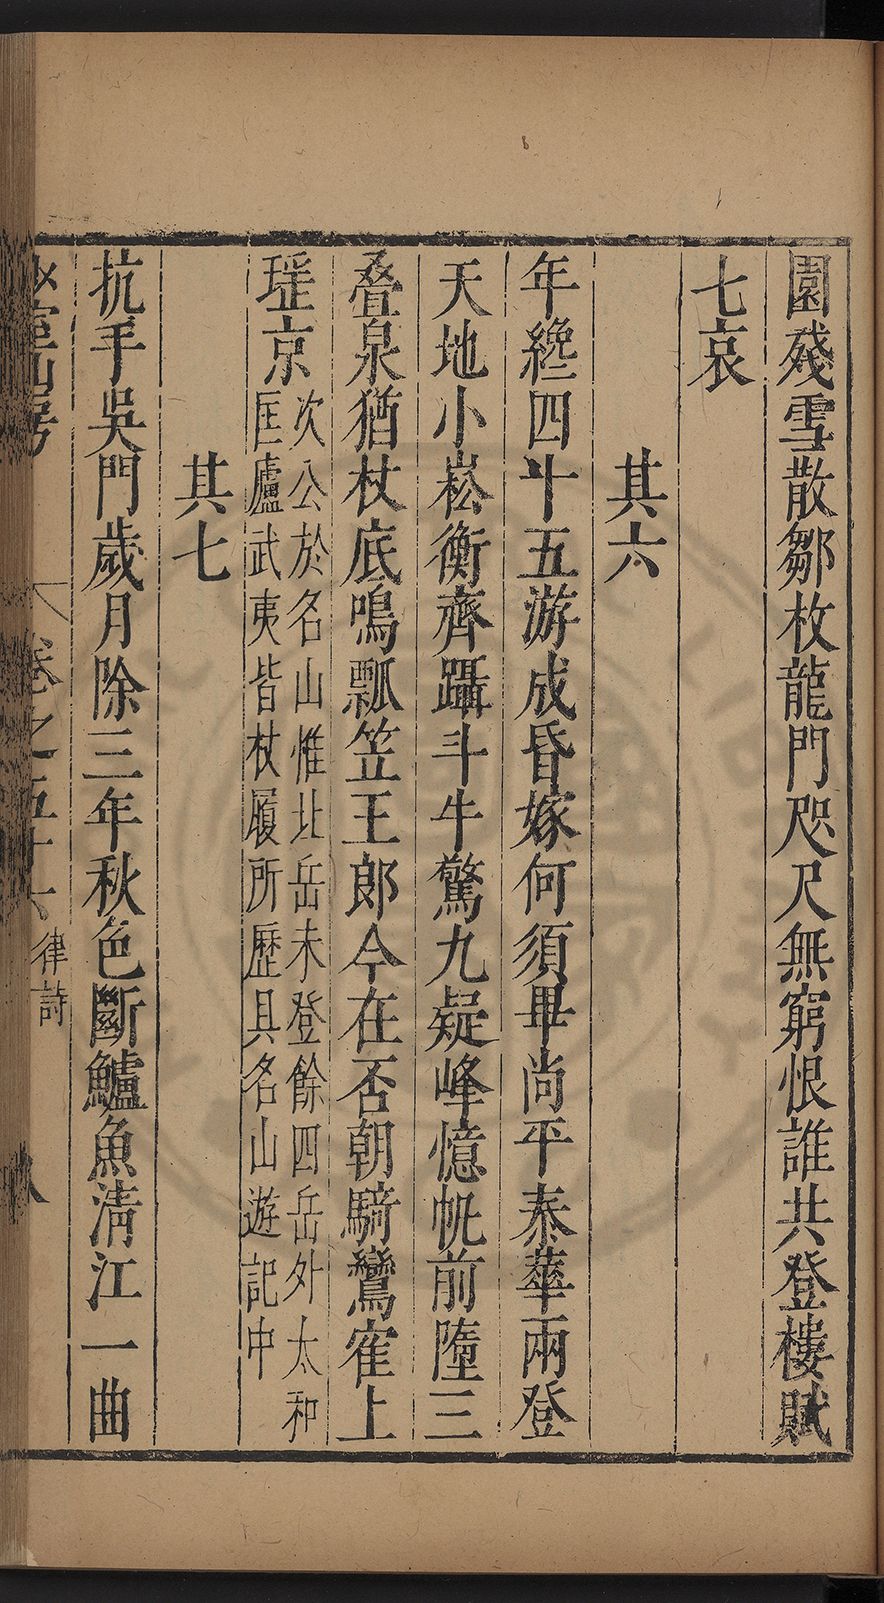 園殘雪散鄒枚龍門咫尺無窮恨誰共登樓賦
七哀
其六
年纔四十五游成昏嫁何須畢尚平泰華兩登
天地小崧衡齊躡斗牛驚九疑峰憶帆前墮三
疊泉猶杖底鳴瓢笠王郎今在否朝騎鸞寉上
瑶京
次公於名山惟北岳未登餘四岳外太和
匡廬武夷皆杖履所歷具名山遊記中
其七
抗手吳門歲月除三年秋色斷鱸魚淸江一曲
室山房
卷之五十六
律詩
八